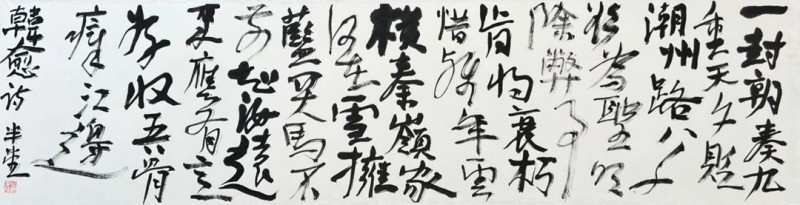 一封朝奏九
重天夕貶
潮州路八千
欲為聖明
除弊事
肯將衰朽
惜殘年雲
橫秦嶺家
何在雪擁
藍關馬不
前知汝遠
来應有意
好收吾骨
瘴江邊
韓愈詩 半堂